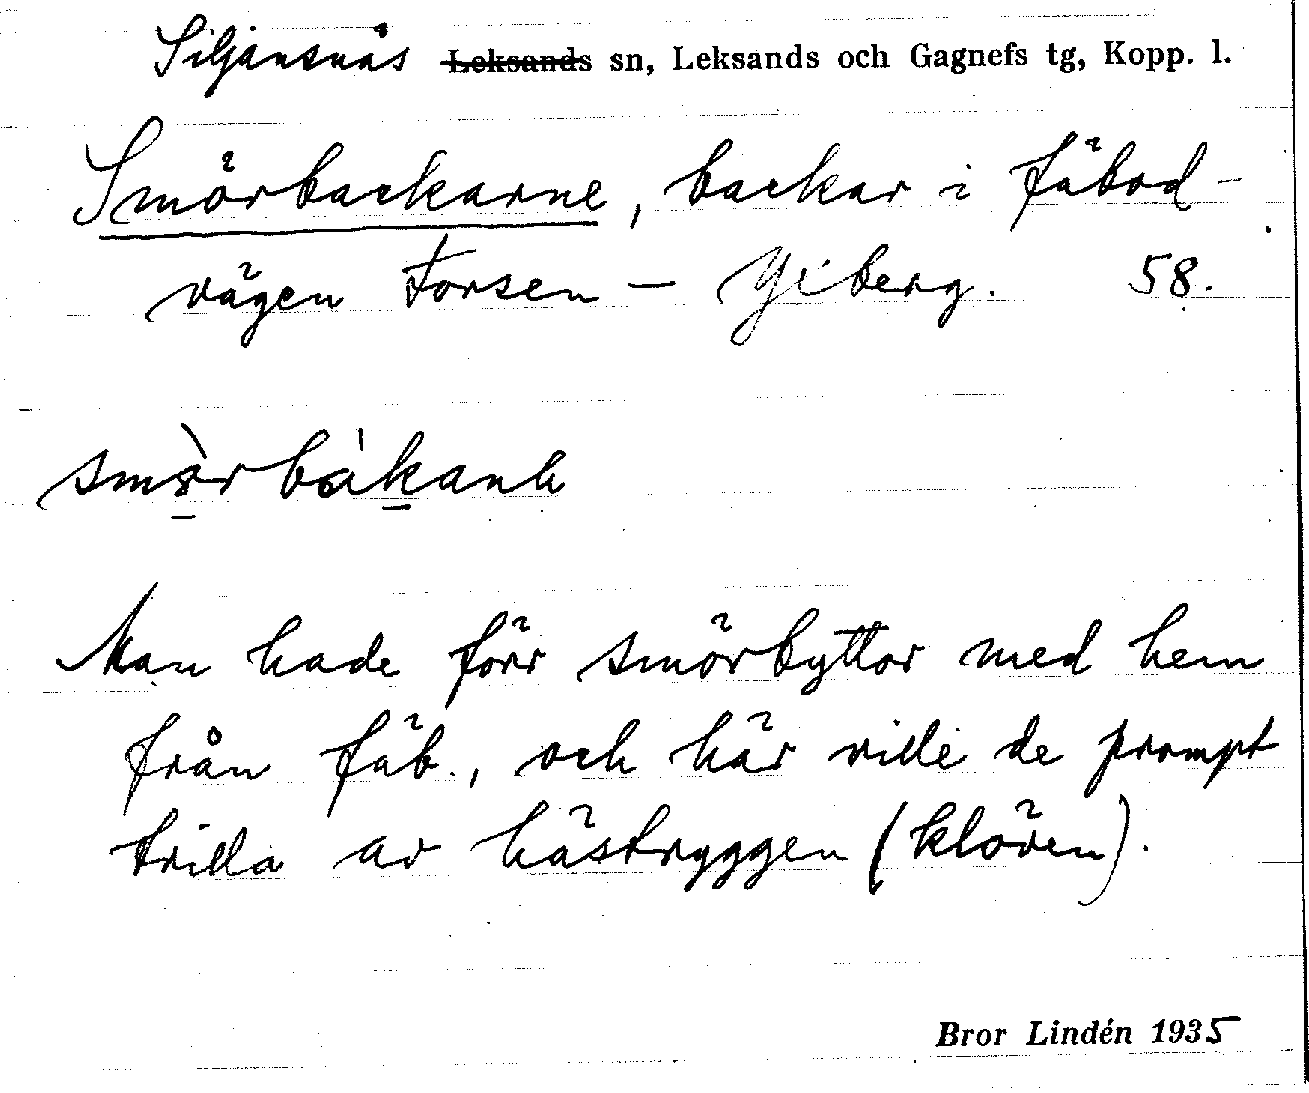 Siljansnäs Leksands sn, Leksands och Gagnefs tg, Kopp. l.
Smörbackarne, backar i fäbod-
vägen Forsen – Yxberg. 58.
smö̀rbákanɐ
Man hade förr smörbyttor med hem
från fäb., och här ville de prompt
trilla av hästryggen (klöven).
Bror Lindén 1935